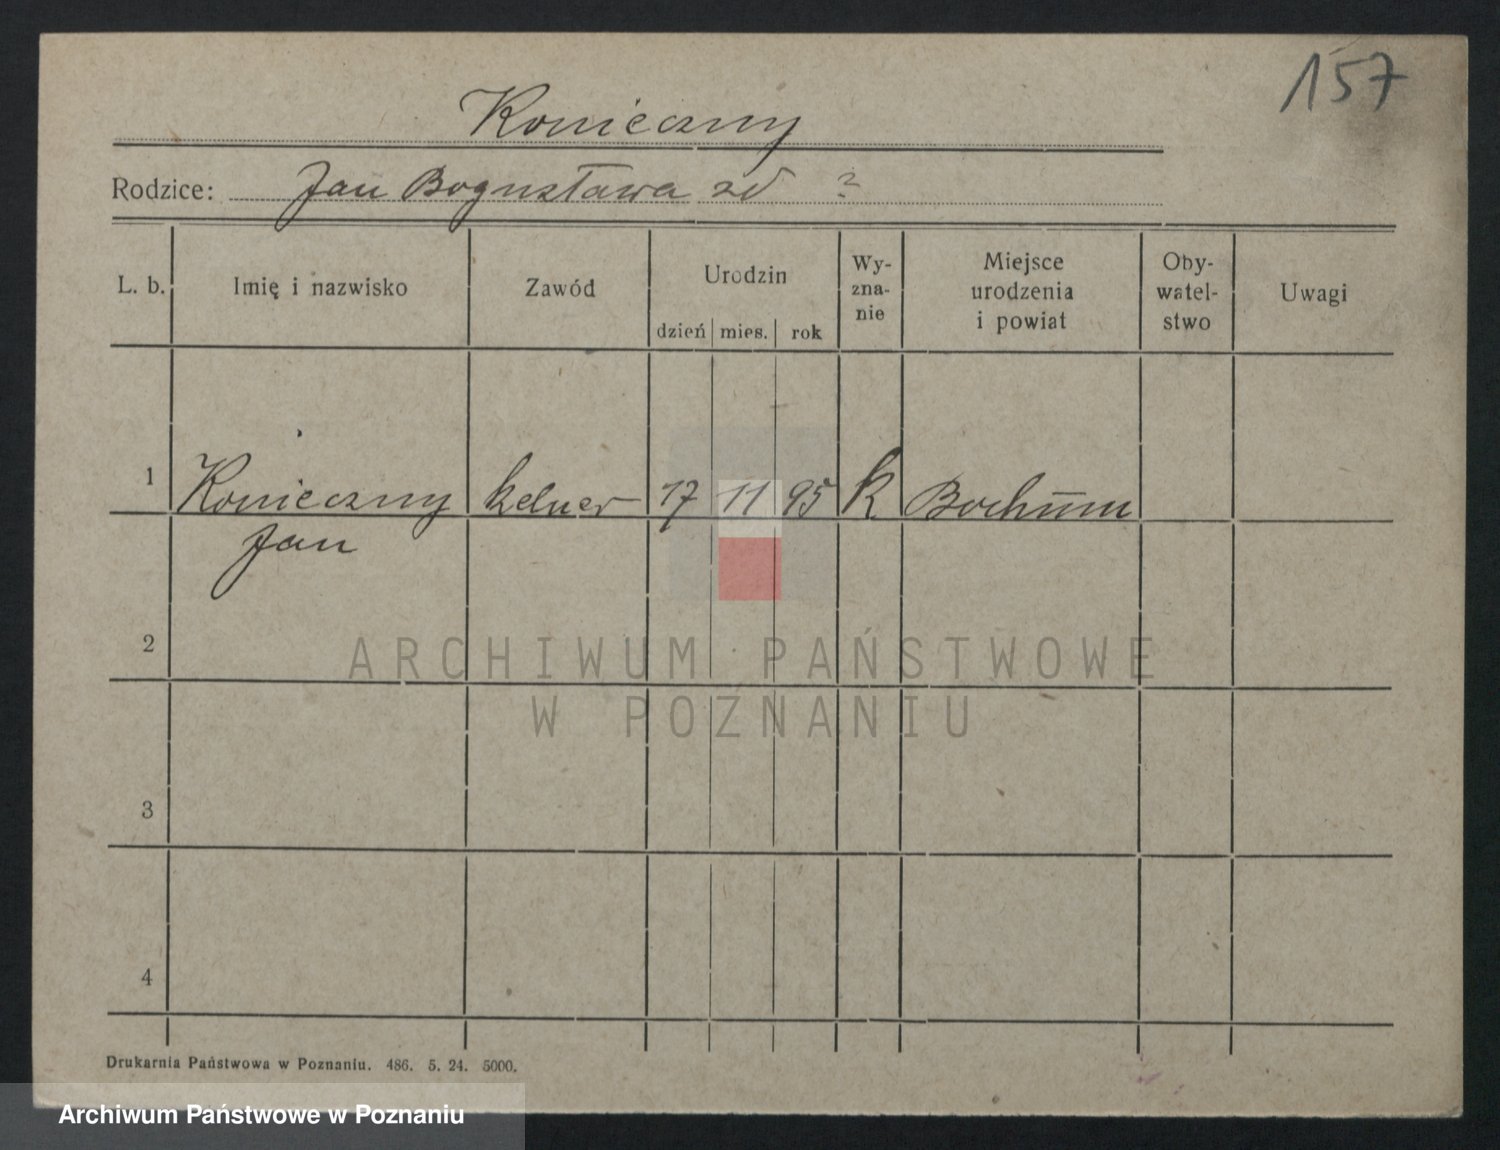 157
Konieczny
Rodzice: Jan Bogusława zd ?
L. b. Imię i nazwisko Zawód Urodzin dzień mies. rok Wy-zna-nie Miejsce urodzenia i powiat Oby-watel-stwo Uwagi
1 Konieczny kelner 17 11 95 k Bochum
Jan
2
3
4
ARCHIWUM PAŃSTWOWE
W POZNANIU
Drukarnia Państwowa w Poznaniu. 486. 5. 24. 5000.
Archiwum Państwowe w Poznaniu